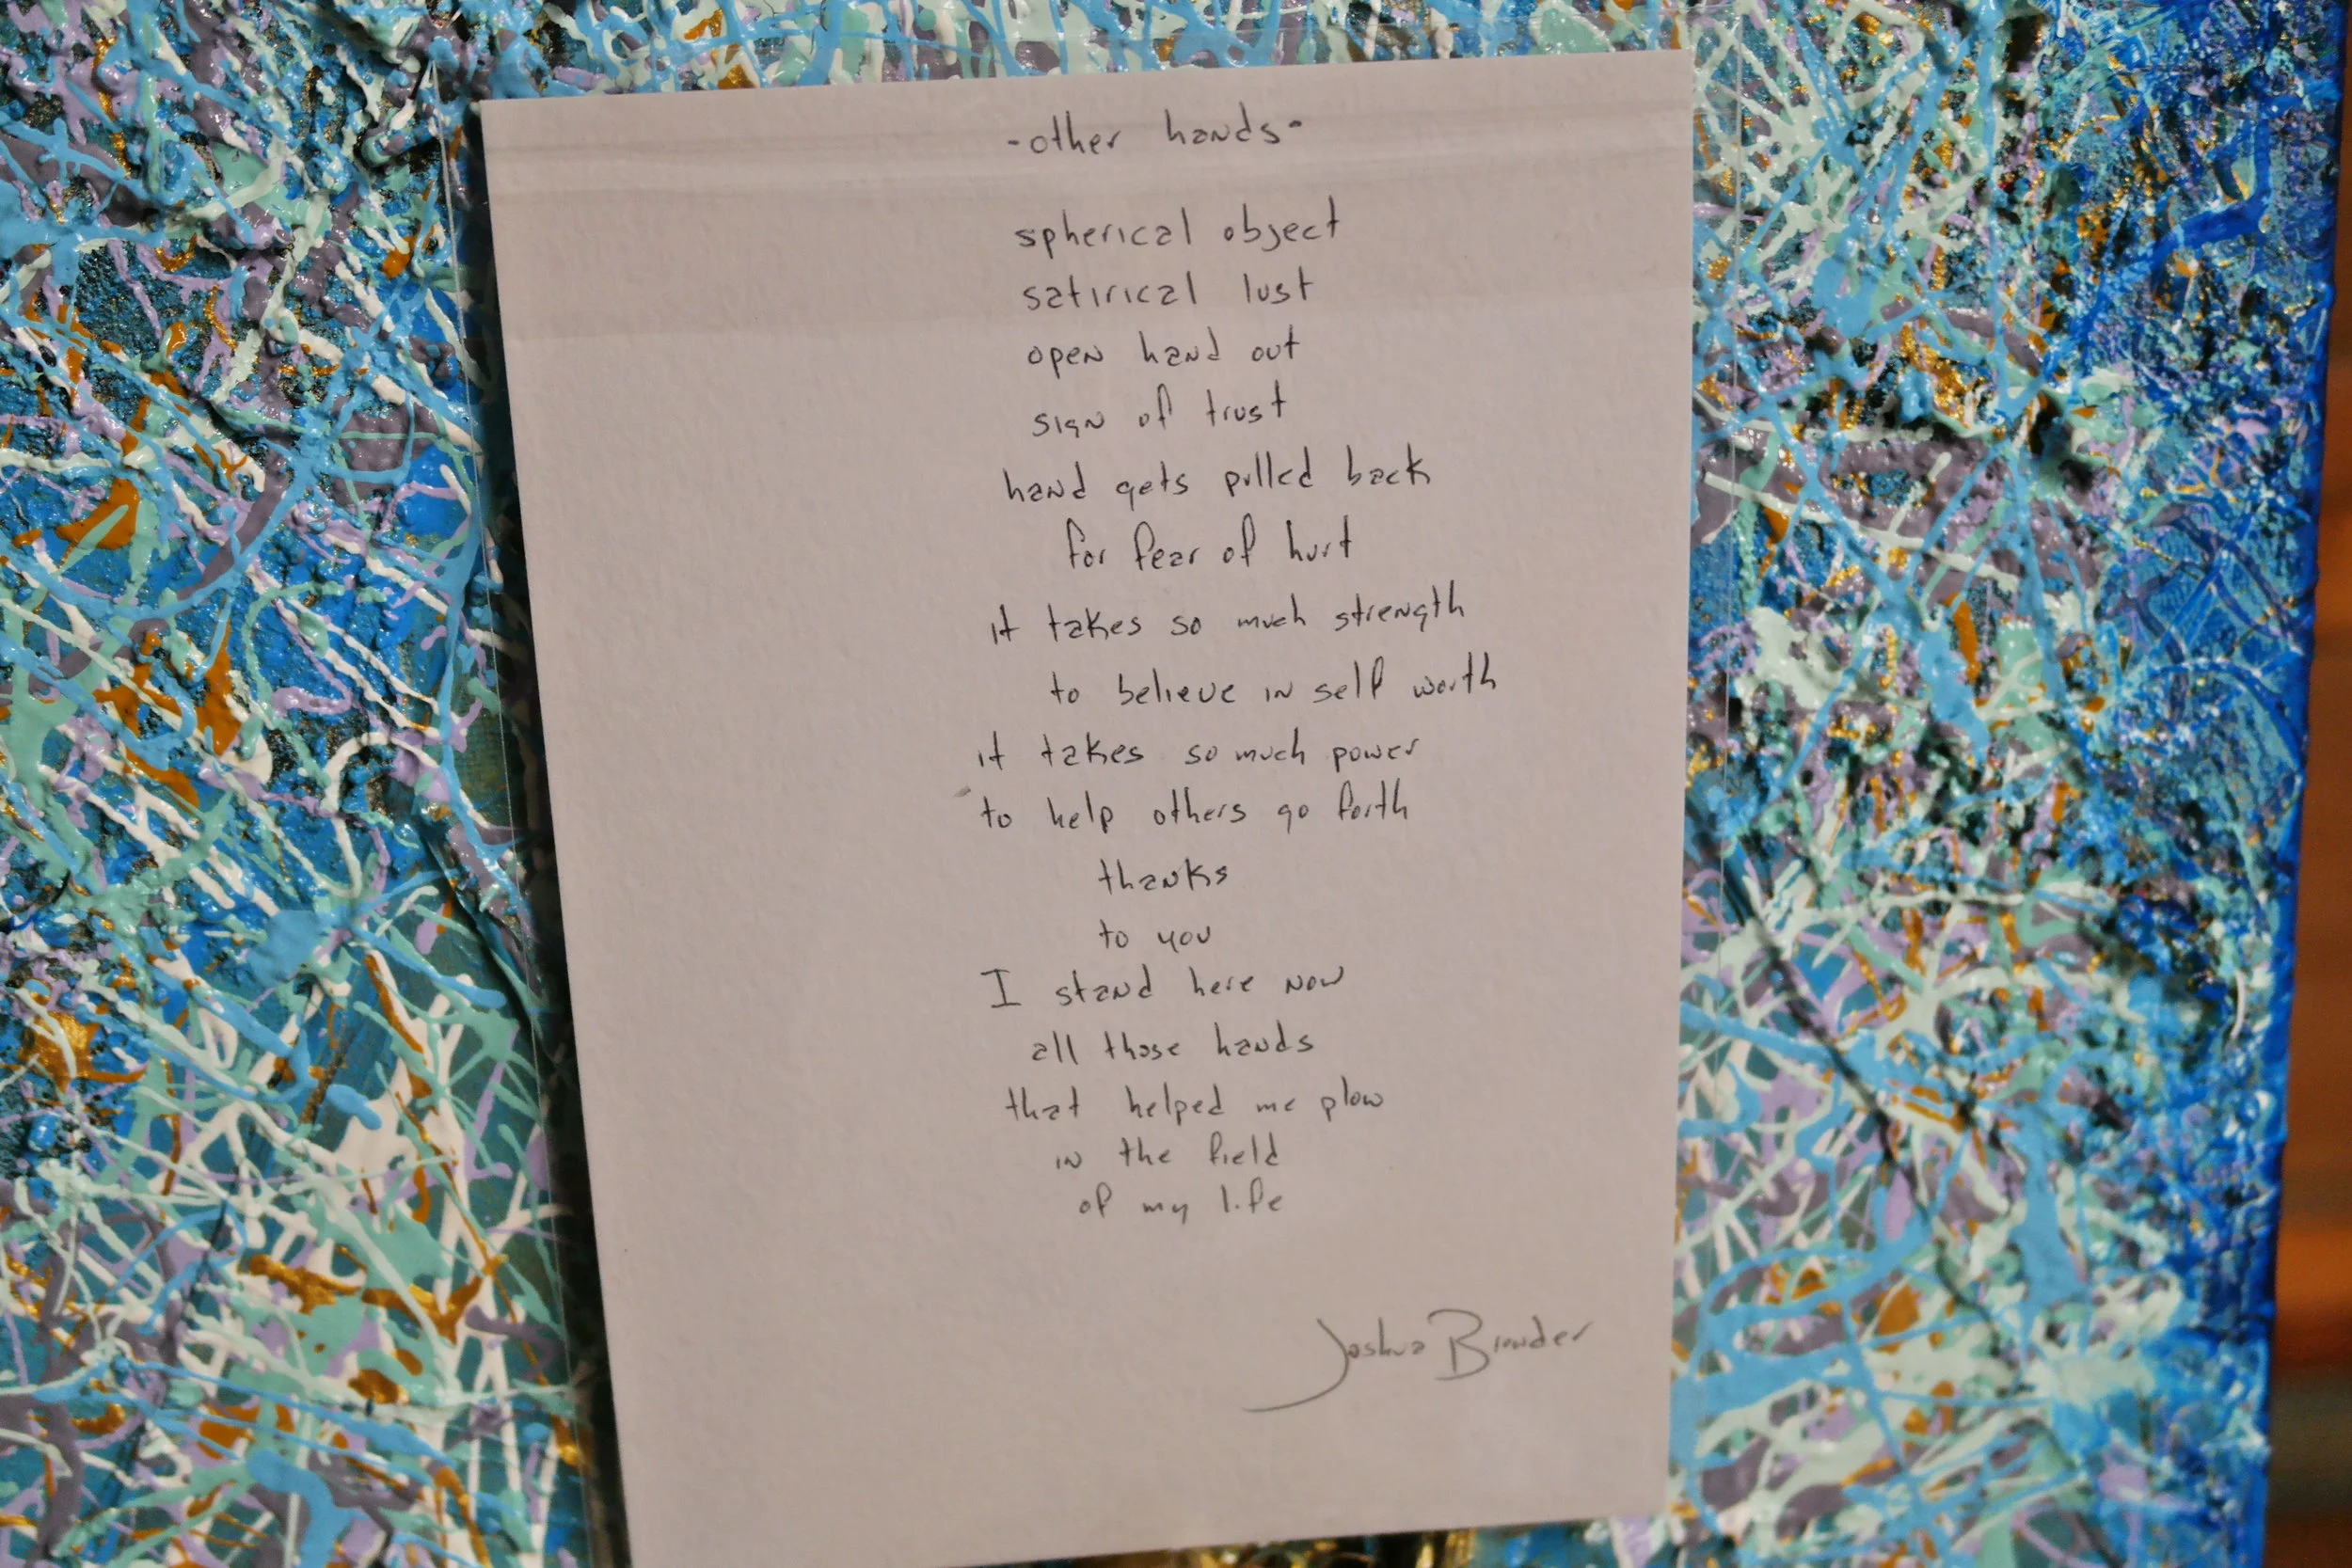 -other hands-
spherical object
satirical lust
open hand out
sign of trust
hand gets pulled back
for fear of hurt
it takes so much strength
to believe in self worth
it takes so much power
to help others go forth
thanks
to you
I stand here now
all those hands
that helped me plow
in the field
of my life
Joshua Browder